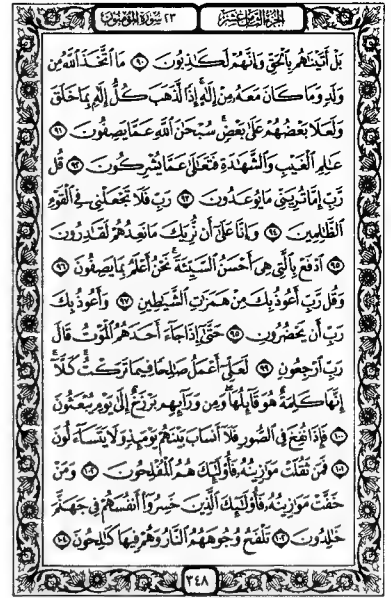 الجزء الثامن عشر
٢٣ سورة المؤمنون
بَلْ أَتَيْنَٰهُم بِٱلْحَقِّ وَإِنَّهُمْ لَكَٰذِبُونَ ٩٠ مَا ٱتَّخَذَ ٱللَّهُ مِن
وَلَدٍ وَمَا كَانَ مَعَهُۥ مِنْ إِلَٰهٍ إِذًا لَّذَهَبَ كُلُّ إِلَٰهٍۭ بِمَا خَلَقَ
وَلَعَلَا بَعْضُهُمْ عَلَىٰ بَعْضٍ سُبْحَٰنَ ٱللَّهِ عَمَّا يَصِفُونَ ٩١
عَٰلِمِ ٱلْغَيْبِ وَٱلشَّهَٰدَةِ فَتَعَٰلَىٰ عَمَّا يُشْرِكُونَ ٩٢ قُل
رَّبِّ إِمَّا تُرِيَنِّى مَا يُوعَدُونَ ٩٣ رَبِّ فَلَا تَجْعَلْنِى فِى ٱلْقَوْمِ
ٱلظَّٰلِمِينَ ٩٤ وَإِنَّا عَلَىٰٓ أَن نُّرِيَكَ مَا نَعِدُهُمْ لَقَٰدِرُونَ
٩٥ ٱدْفَعْ بِٱلَّتِى هِىَ أَحْسَنُ ٱلسَّيِّئَةَ نَحْنُ أَعْلَمُ بِمَا يَصِفُونَ ٩٦
وَقُل رَّبِّ أَعُوذُ بِكَ مِنْ هَمَزَٰتِ ٱلشَّيَٰطِينِ ٩٧ وَأَعُوذُ بِكَ
رَبِّ أَن يَحْضُرُونِ ٩٨ حَتَّىٰٓ إِذَا جَآءَ أَحَدَهُمُ ٱلْمَوْتُ قَالَ
رَبِّ ٱرْجِعُونِ ٩٩ لَعَلِّىٓ أَعْمَلُ صَٰلِحًا فِيمَا تَرَكْتُ كَلَّآ
إِنَّهَا كَلِمَةٌ هُوَ قَآئِلُهَا وَمِن وَرَآئِهِم بَرْزَخٌ إِلَىٰ يَوْمِ يُبْعَثُونَ
١٠٠ فَإِذَا نُفِخَ فِى ٱلصُّورِ فَلَآ أَنسَابَ بَيْنَهُمْ يَوْمَئِذٍ وَلَا يَتَسَآءَلُونَ
١٠١ فَمَن ثَقُلَتْ مَوَٰزِينُهُۥ فَأُو۟لَٰٓئِكَ هُمُ ٱلْمُفْلِحُونَ ١٠٢ وَمَنْ
خَفَّتْ مَوَٰزِينُهُۥ فَأُو۟لَٰٓئِكَ ٱلَّذِينَ خَسِرُوٓا۟ أَنفُسَهُمْ فِى جَهَنَّمَ
خَٰلِدُونَ ١٠٣ تَلْفَحُ وُجُوهَهُمُ ٱلنَّارُ وَهُمْ فِيهَا كَٰلِحُونَ ١٠٤
٣٤٨